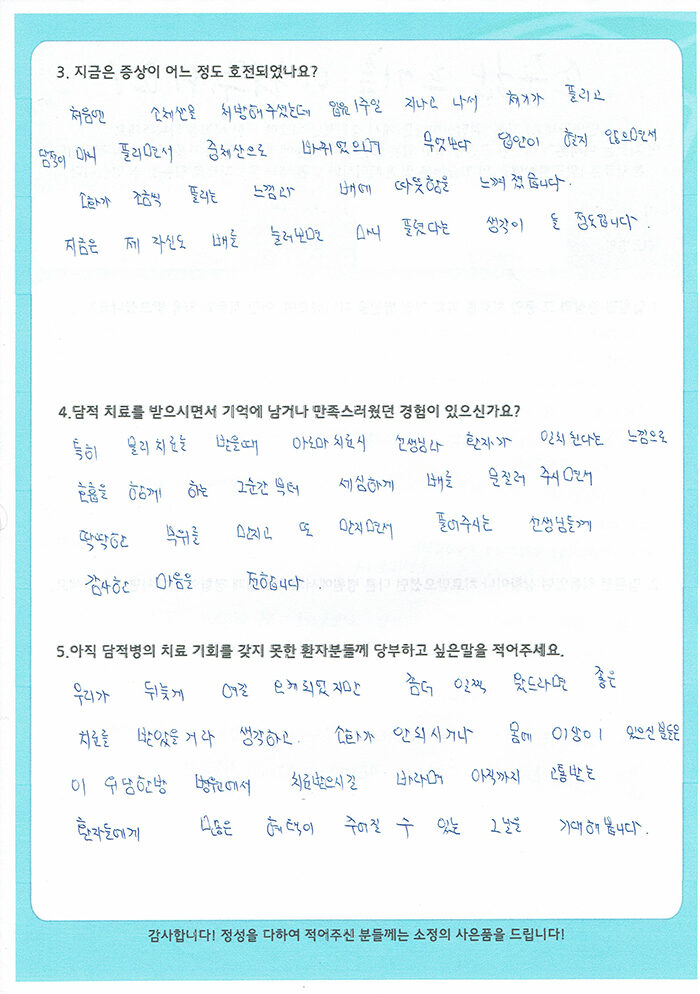 3. 지금은 증상이 어느 정도 호전되었나요?
처음엔 소체산을 처방해주셨는데 입원 1주일 지나고 나서 체기가 풀리고
담적이 마니 풀리면서 중체산으로 바뀌었으며 무엇보다 입안이 헐지 않으면서
소화가 조금씩 풀리는 느낌과 배에 따뜻함을 느껴졌습니다.
지금은 제 자신도 배를 눌러보면 마니 풀렸다는 생각이 들 정도입니다.
4.담적 치료를 받으시면서 기억에 남거나 만족스러웠던 경험이 있으신가요?
특히 물리치료를 받을때 아로마치료시 선생님과 환자가 인치된다는 느낌으로
호흡을 함께 하는 그순간부터 세심하게 배를 문질러 주시면서
딱딱한 부위를 만지고 또 만지면서 풀어주시는 선생님들께
감사한 마음을 전합니다.
5.아직 담적병의 치료 기회를 갖지 못한 환자분들께 당부하고 싶은말을 적어주세요.
우리가 뒤늦게 여길 오게되었지만 좀더 일찍 왔드라면 좋은
치료를 받았을거라 생각하고. 소화가 안되시거나 몸에 이상이 있으신분들은
이 위담한방 병원에서 치료받으시길 바라며 아직까지 고통받는
환자들에게 많은 혜택이 주어질 수 있는 그날을 기대해 봅니다.
감사합니다! 정성을 다하여 적어주신 분들께는 소정의 사은품을 드립니다!